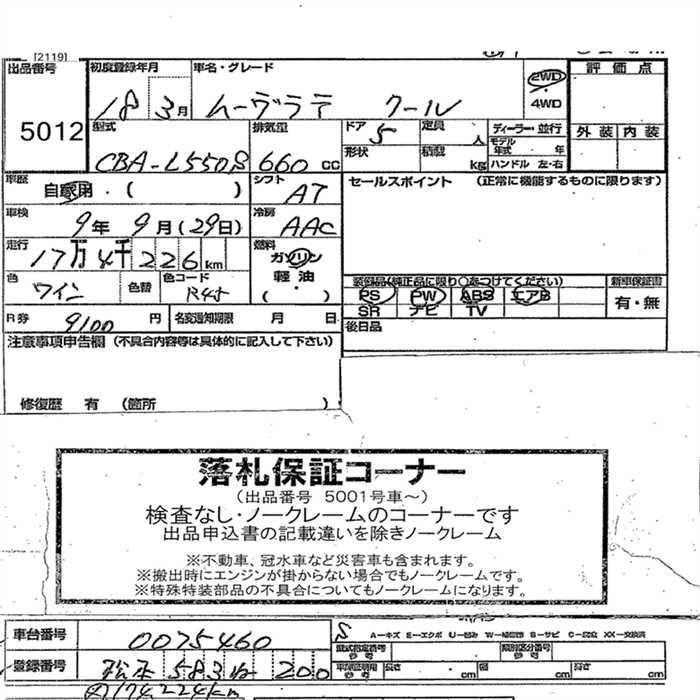 [2119]
出品番号 5012
初度登録年月 18 3月
車名・グレード ムーヴラテ クール
2WD
4WD
評価点
外装 内装
型式 CBA-L550S
排気量 660 cc
ドア 5
定員 人
ディーラー・並行
形状
積載 kg
モデル年式 年
ハンドル 左・右
車歴 自家用・( )
シフト AT
セールスポイント (正常に機能するものに限ります)
車検 9年 9月(29日)
冷房 AAC
走行 17万4千226km
燃料 ガソリン
軽油
( ・ )
色 ワイン 色替 色コード R45
装備品(純正品に限り○をつけてください) 新車保証書
PS PW ABS エアB 有・無
SR ナビ TV
R券 9100 円 名変通知期限 月 日
後日品
注意事項申告欄 (不具合内容等は具体的に記入して下さい)
修復歴 有 (箇所 )
落札保証コーナー
(出品番号 5001号車~)
検査なし・ノークレームのコーナーです
出品申込書の記載違いを除きノークレーム
※不動車、冠水車など災害車も含まれます。
※搬出時にエンジンが掛からない場合でもノークレームです。
※特殊特装部品の不具合についてもノークレームになります。
車台番号 0075460
S
A-キズ E-エクボ U-凹み W-補修跡 S-サビ C-腐食 XX-交換済
型式指定番号 参考 類別区分番号 参考
登録番号 松本 583 200
車検証明用 参考 長さ cm 幅 cm 高さ cm
174224km